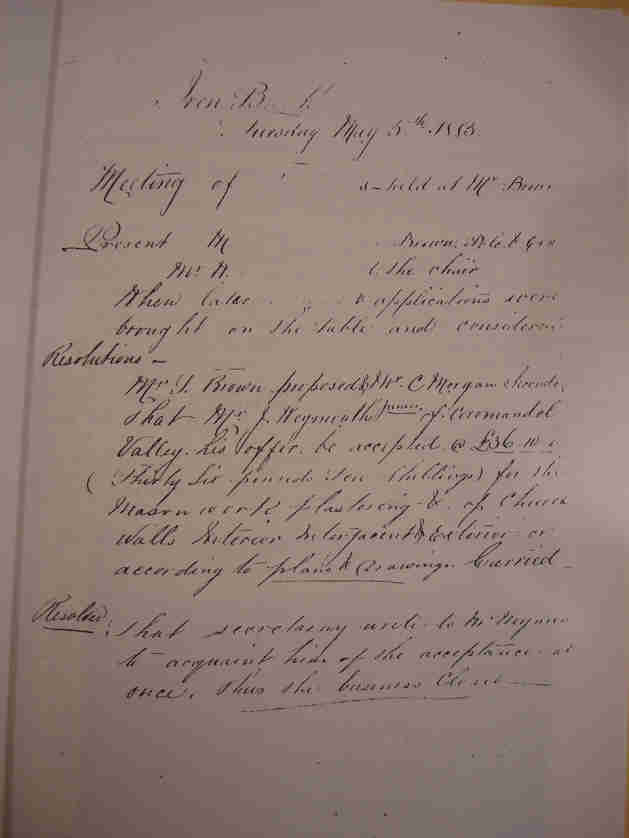 Iron B
Tuesday May 5th 1885
Meeting of held at Mr Brow
Present M Brown,
Mr the chair
When applications were
brought on the table and considered
Resolutions —
Mr Brown proposed & Mr C Morgan
That Mr J. Weymouth junior of Coromandel
Valley. his offer be accepted @ £36. 10
(Thirty Six pounds Ten Shillings) for the
Mason work plastering & of Church
Walls Interior & Exterior
according to plans & Drawings. Carried —
Resolved: That secretary write to Mr Weymo
to acquaint him of the acceptance at
once. Thus the business